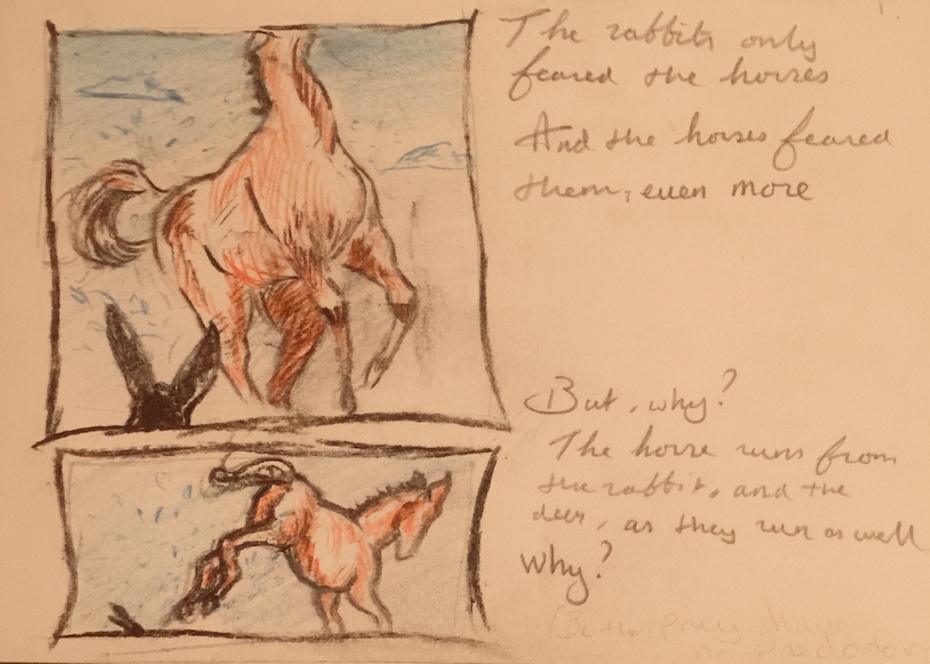 The rabbits only
feared the horses
And the horses feared
them, even more
But, why?
The horse runs from
the rabbit, and the
deer, as they run as well
why?
prey have
no predator